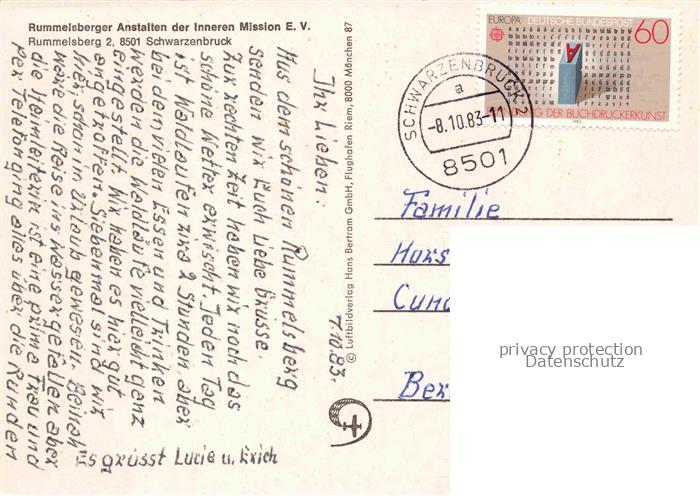 Rummelsberger Anstalten der Inneren Mission E. V.
Rummelsberg 2, 8501 Schwarzenbruck
7.10.83.
Ihr Lieben!
Aus dem schönen Rummelsberg
senden wir Euch Liebe Grüsse.
Zur rechten Zeit haben wir noch das
schöne Wetter erwischt. Jeden Tag
ist Waldlaufen zwa 2 Stunden. aber
bei dem vielen Essen und Trinken
werden die Waldläufe vielleicht ganz
eingestellt. Wir haben es hier gut
angetroffen. Siebenmal sind wir
hier schon in Urlaub gewesen. Beinah
wäre die Reise ins Wasser gefallen aber
die Heimleiterin ist eine prima Frau und
per Telefon ging alles über die Runden
Es grüsst Lucie u. Erich
© Luftbildverlag Hans Bertram GmbH, Flughafen Riem, 8000 München 87
EUROPA DEUTSCHE BUNDESPOST 60
A
DER BUCHDRUCKERKUNST
1983
SCHWARZENBRUCK 2
a
-8.10.83-11
8501
Familie
Hors
Cun
Ber
privacy protection
Datenschutz